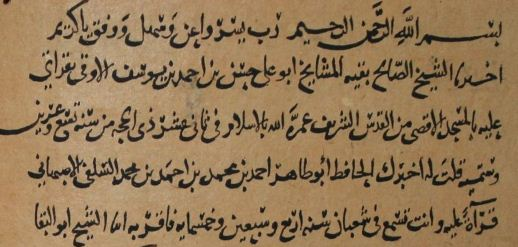 بسم الله الرحمن الرحيم رب يسر واعن وسهل ووفق يا كريم
اخبرنا الشيخ الصالح بقية المشايخ ابو علي حسن بن احمد بن يوسف الاوقي بقراتي
عليه بالمسجد الاقصى من القدس الشريف عمره الله بالاسلام في ثاني عشر ذي الحجة من سنة تسع وعشرين
وستمية قلت له اخبرك الحافظ ابو طاهر احمد بن محمد بن احمد بن محمد السلفي الاصبهاني
قراة عليه وانت تسمع في شعبان سنة اربع وسبعين وخمسماية فاقر به انا الشيخ ابو البقا